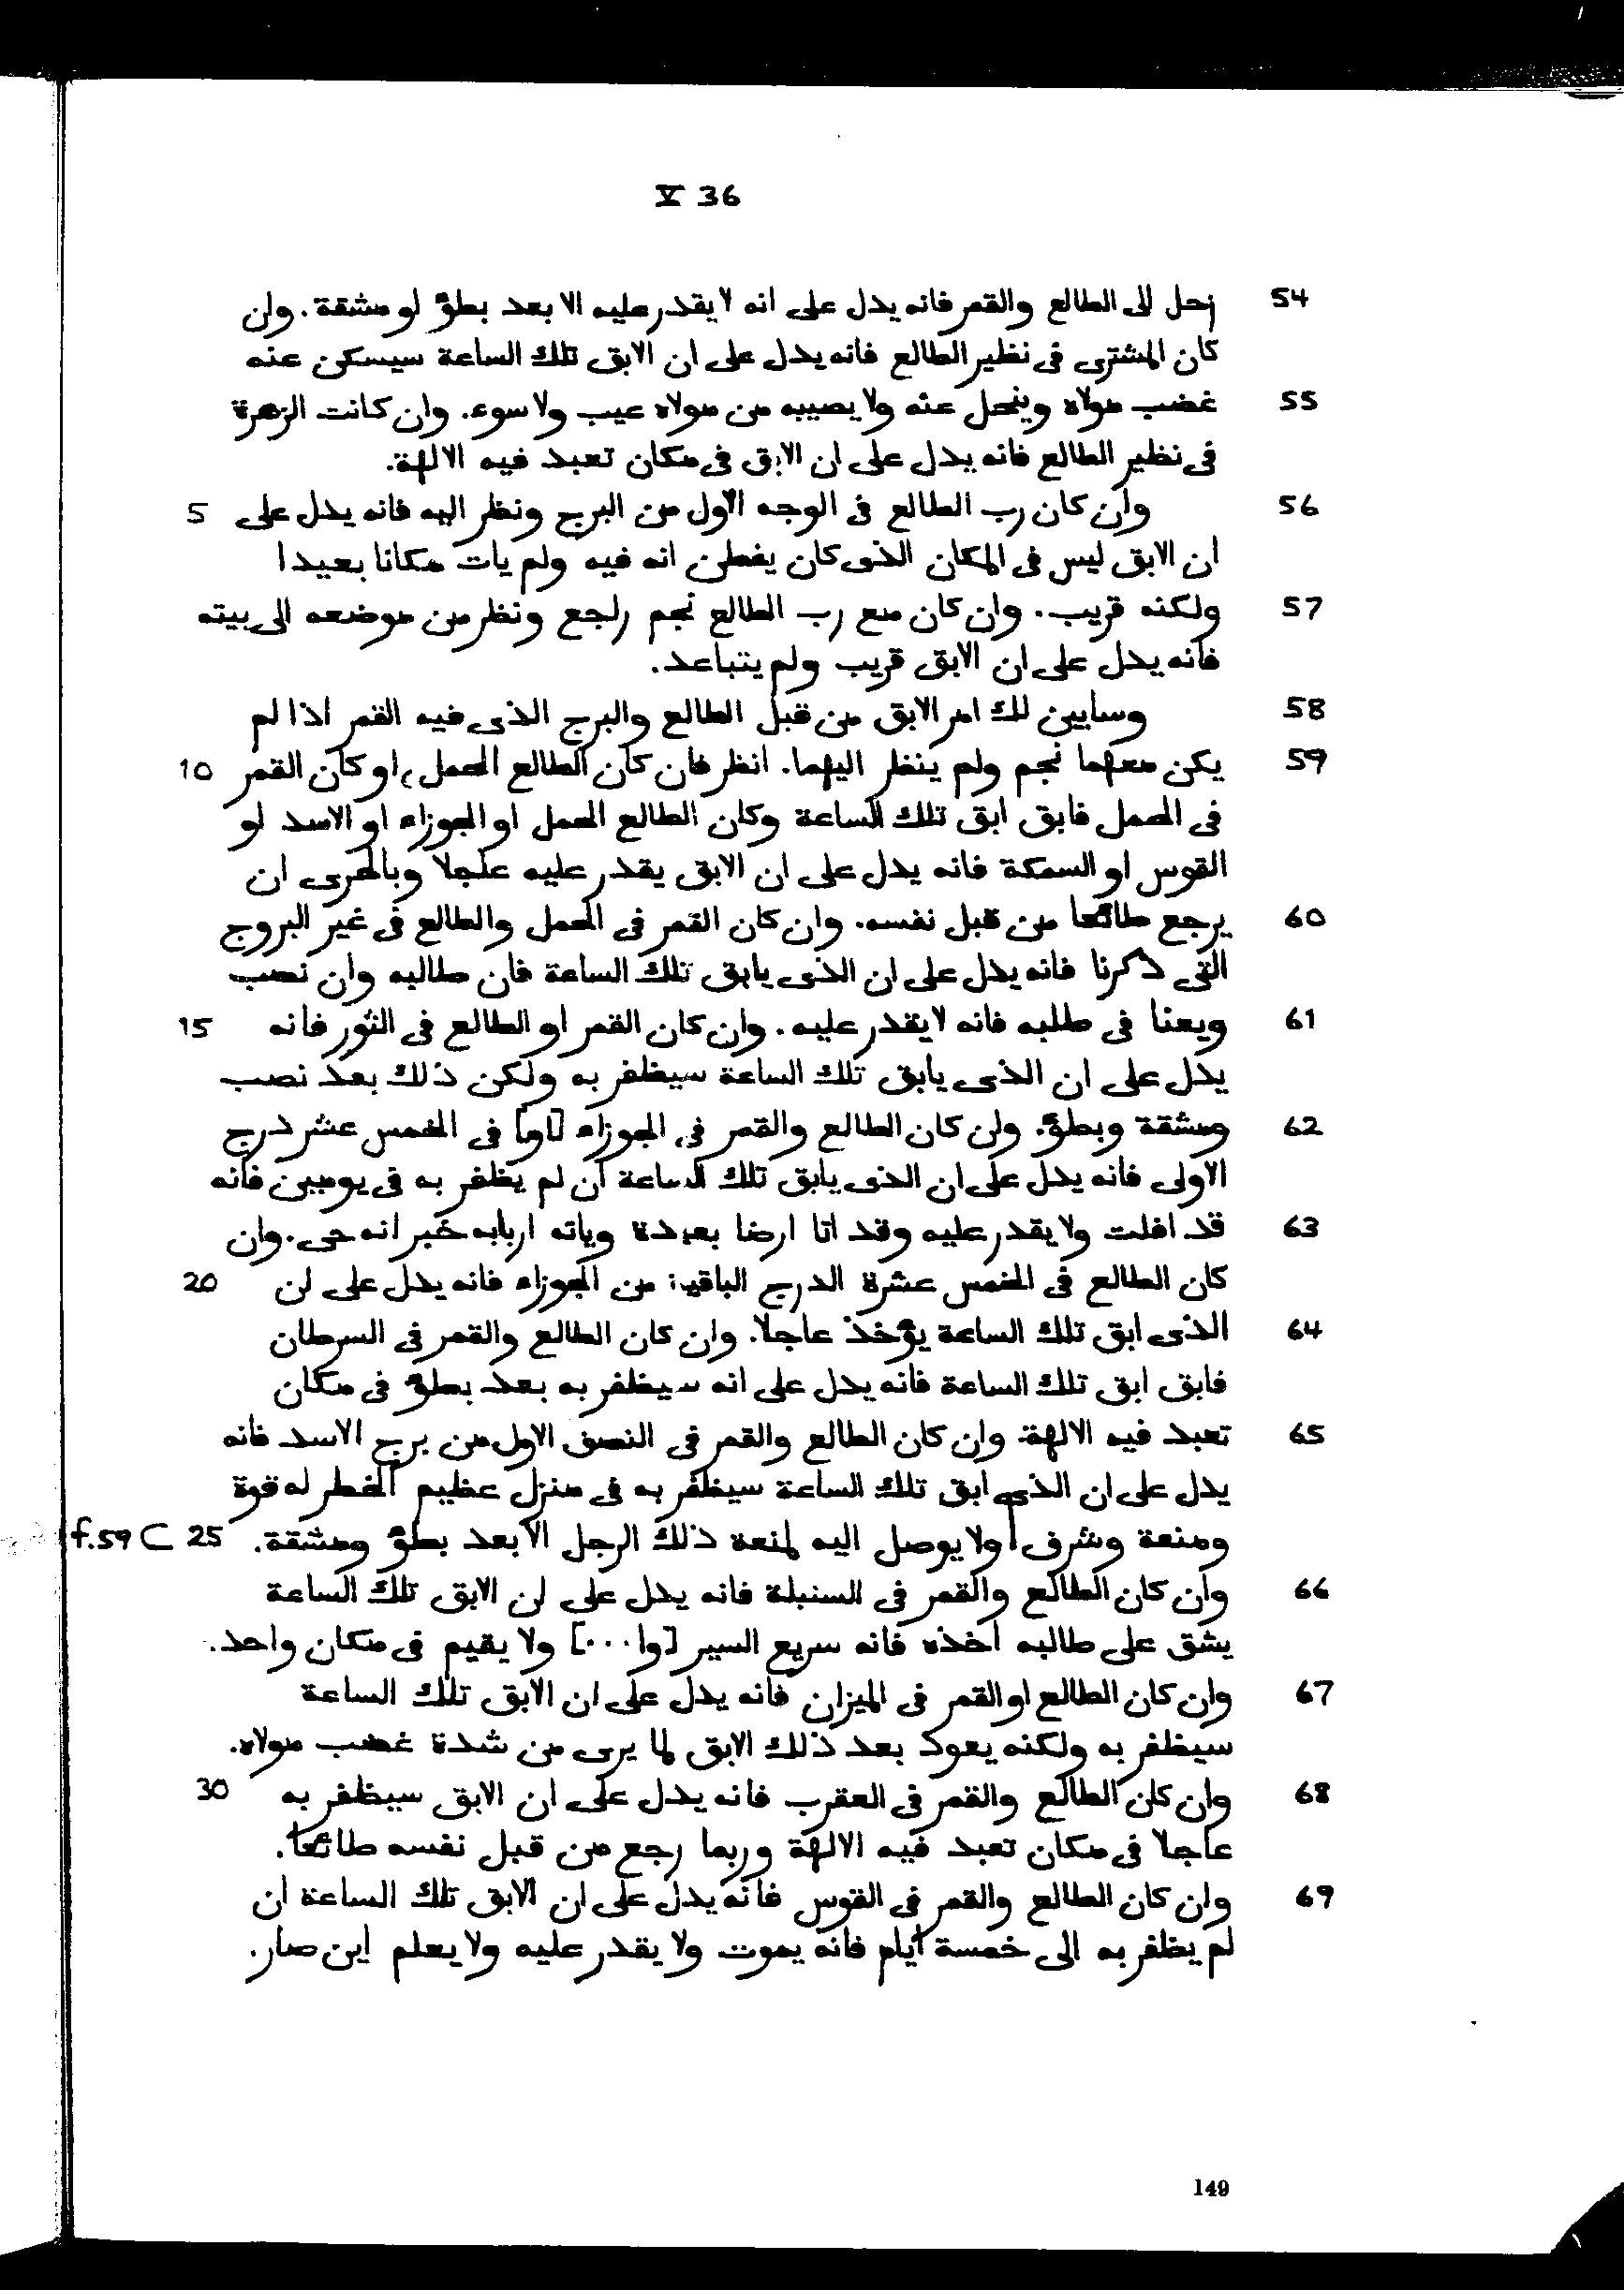 V 36
54 زحل الى الطالع والقمر فانه يدل على انه لا يقدر عليه الا بعد بطؤ او مشقة. وان
كان المشترى فى نظير الطالع فانه يدل على ان الابق تلك الساعة سيسكن عنه
55 غضب مولاه وينحل عنه ولا يصيبه من مولاه عيب ولا سوء. وان كانت الزهرة
فى نظير الطالع فانه يدل على ان الابق فى مكان تعبد فيه الالهة.
56 وان كان رب الطالع فى الوجه الاول من البرج ونظر اليه فانه يدل على 5
ان الابق ليس فى المكان الذى كان يفطن انه فيه ولم يات مكانا بعيدا
57 ولكنه قريب. وان كان مع رب الطالع نجم راجع ونظر من موضعه الى بيته
فانه يدل على ان الابق قريب ولم يتباعد.
58 وسابين لك امر الابق من قبل الطالع والبرج الذى فيه القمر اذا لم
59 يكن معهما نجم ولم ينظر اليهما. انظر فان كان الطالع الحمل، او كان القمر 10
فى الحمل فابق ابق تلك الساعة وكان الطالع الحمل او الجوزاء او الاسد او
القوس او السمكة فانه يدل على ان الابق يقدر عليه عاجلا وبالحرى ان
60 يرجع طائعا من قبل نفسه. وان كان القمر فى الحمل والطالع فى غير البروج
التى ذكرنا فانه يدل على ان الذى يابق تلك الساعة فان طالبه وان نصب
61 ويعنا فى طلبه فانه لا يقدر عليه. وان كان القمر او الطالع فى الثور فانه 15
يدل على ان الذى يابق تلك الساعة سيظفر به ولكن ذلك بعد نصب
62 ومشقة وبطؤ. وان كان الطالع والقمر فى الجوزاء [او] فى الخمس عشر درج
الاولى فانه يدل على ان الذى يابق تلك الساعة ان لم يظفر به فى يومين فانه
63 قد افلت ولا يقدر عليه وقد اتا ارضا بعيدة وياته اربابه خبر انه حى. وان
كان الطالع فى الخمس عشرة الدرج الباقية من الجوزاء فانه يدل على ان 20
64 الذى ابق تلك الساعة يؤخذ عاجلا. وان كان الطالع والقمر فى السرطان
فابق ابق تلك الساعة فانه يدل على انه سيظفر به بعد بطؤ فى مكان
65 تعبد فيه الالهة. وان كان الطالع والقمر فى النصف الاول من برج الاسد فانه
يدل على ان الذى ابق تلك الساعة سيظفر به فى منزل عظيم الخطر له قوة
ومنعة وشرف | ولا يوصل اليه لمنعة ذلك الرجل الا بعد بطؤ ومشقة. 25 f.59 C
66 وان كان الطالع والقمر فى السنبلة فانه يدل على ان الابق تلك الساعة
يشق على طالبه اخذه فانه سريع السير [وا...] ولا يقيم فى مكان واحد.
67 وان كان الطالع او القمر فى الميزان فانه يدل على ان الابق تلك الساعة
سيظفر به ولكنه يعود بعد ذلك الابق لما يرى من شدة غضب مولاه.
68 وان كان الطالع والقمر فى العقرب فانه يدل على ان الابق سيظفر به 30
عاجلا فى مكان تعبد فيه الالهة وربما رجع من قبل نفسه طائعا.
69 وان كان الطالع والقمر فى القوس فانه يدل على ان الابق تلك الساعة ان
لم يظفر به الى خمسة ايام فانه يموت ولا يقدر عليه ولا يعلم اين صار.
149